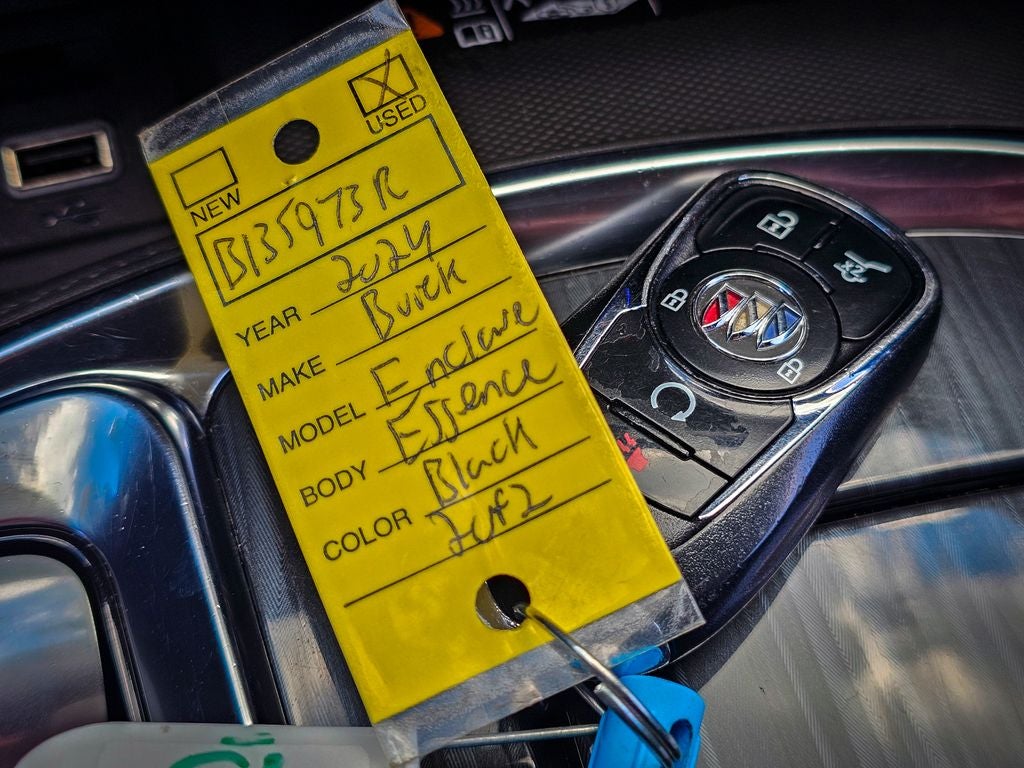 USED
NEW
B135973R
YEAR 2024
MAKE Buick
MODEL Enclave
BODY Essence
COLOR Black
2of2